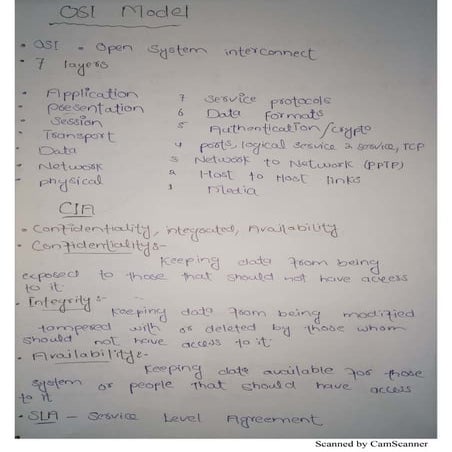 OSI Model
• OSI - Open System interconnect
• 7 layers
• Application 7 service protocols
• Presentation 6 Data Formats
• Session 5 Authentication/crypto
• Transport 4 ports, logical service 2 service, TCP
• Data 3 Network to Network (PPTP)
• Network 2 Host to Host links
• physical 1 Media
CIA
• Confidentiality, integrated, Availability
• Confidentiality:-
Keeping data from being
exposed to those that should not have access
to it
• Integrity:-
Keeping data from being modified
tampered with or deleted by those whom
should not have access to it.
• Availability:-
Keeping data available for those
system or people that should have access
to it
• SLA - Service Level Agreement
Scanned by CamScanner